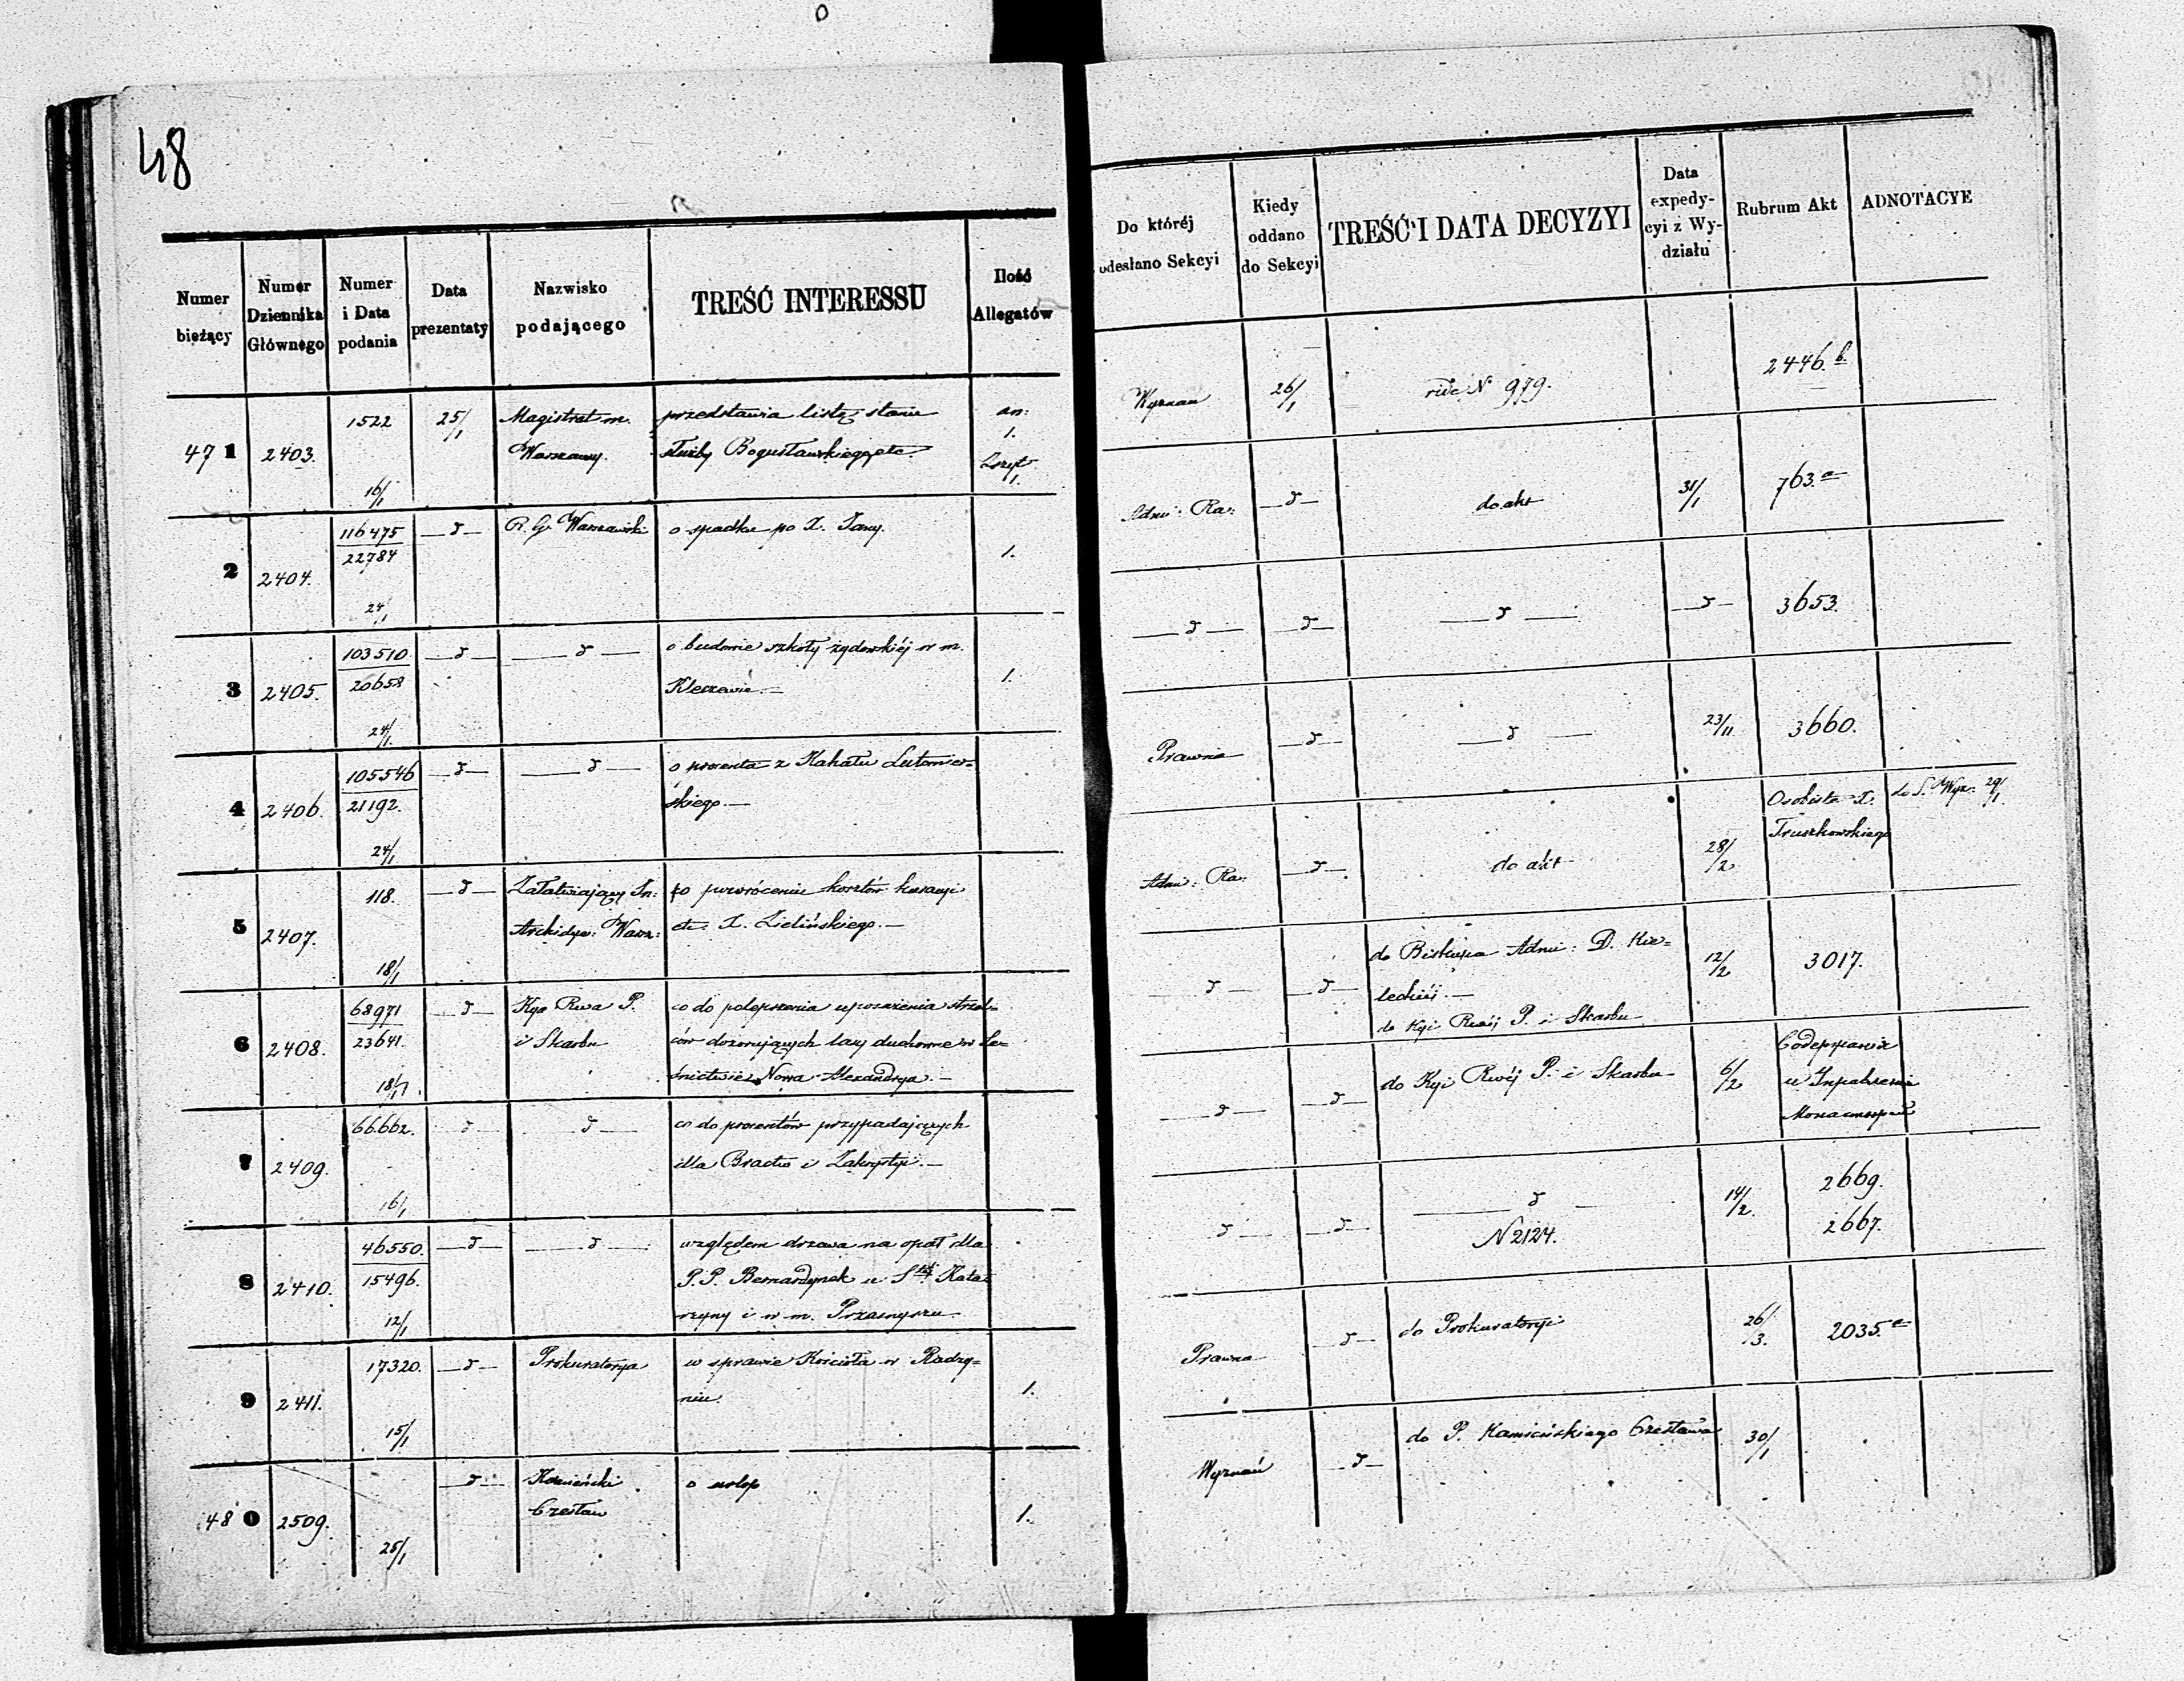 48
Numer bieżący
Numer Dziennika Głównego
Numer i Data podania
Data prezentaty
Nazwisko podającego
TREŚĆ INTERESSU
Ilość Allegatów
Do któréj odesłano Sekcyi
Kiedy oddano do Sekcyi
TREŚĆ I DATA DECYZYI
Data expedycyi z Wydziału
Rubrum Akt
ADNOTACYE
47 1 2403. 1522 16/1 25/1 Magistrat m.
Warszawy.
przedstawia listę stanu
służby Bogusławskiego etc.
an: 1.
Zeszyt 1.
Wyznań 26/1 vide N 979. 2446.b.
2 2404. 116475
22784
24/1
R. G. Warszawski o spadku po X.
1.
Adm: Ra: do akt 31/1 763.a
3 2405. 103510
20658
24/1
o budowie szkoły żydowskiéj w m.
Kleczewie.—
1.
3653.
4 2406. 105546
21192.
24/1
o procenta z Kahału Lutomier=
skiego.—
Prawna 23/11 3660.
5 2407. 118.
18/1
Załatwiający In:
Archidye: Warsz:
o powrócenie kosztów kuracyi
etc. X. Zielińskiego.—
Adm: Ra: do akt 28/2
Osobiste X.
Truszkowskiego
do S. Wyz: 29/1.
6 2408. 68971
23641.
18/1
Kya Rwa P.
i Skarbu
co do polepszenia uposażenia strzel=
ców dozorujących lasy duchowne w Le=
śnictwie Nowa Alexandrya.—
do Biskupa Adm: D. Kie=
leckiéj.—
do Kyi Rwéj P. i Skarbu
12/2 3017.
7 2409. 66.662.
16/1
co do procentów przypadających
dla Bractw i Zakrystyi.—
do Kyi Rwéj P. i Skarbu 6/2
8 2410. 46550.
15496.
12/1
względem drzewa na opał dla
P.P. Bernardynek u Stéj Kata=
rzyny i w m. Przasnyszu.
N 2124.
14/2.
2669.
2667.
9 2411. 17320.
15/1
Prokuratorya w sprawie Kościoła w Radzy=
niu.
1.
Prawna do Prokuratoryi 26/3. 2035.a
48 0 2509.
25/1
Kamieński
Czesław
o urlop
1.
Wyznań do P. Kamieńskiego Czesława 30/1